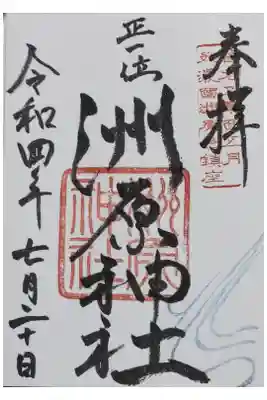 奉拝
正一位
洲原神社
令和四年七月二十日